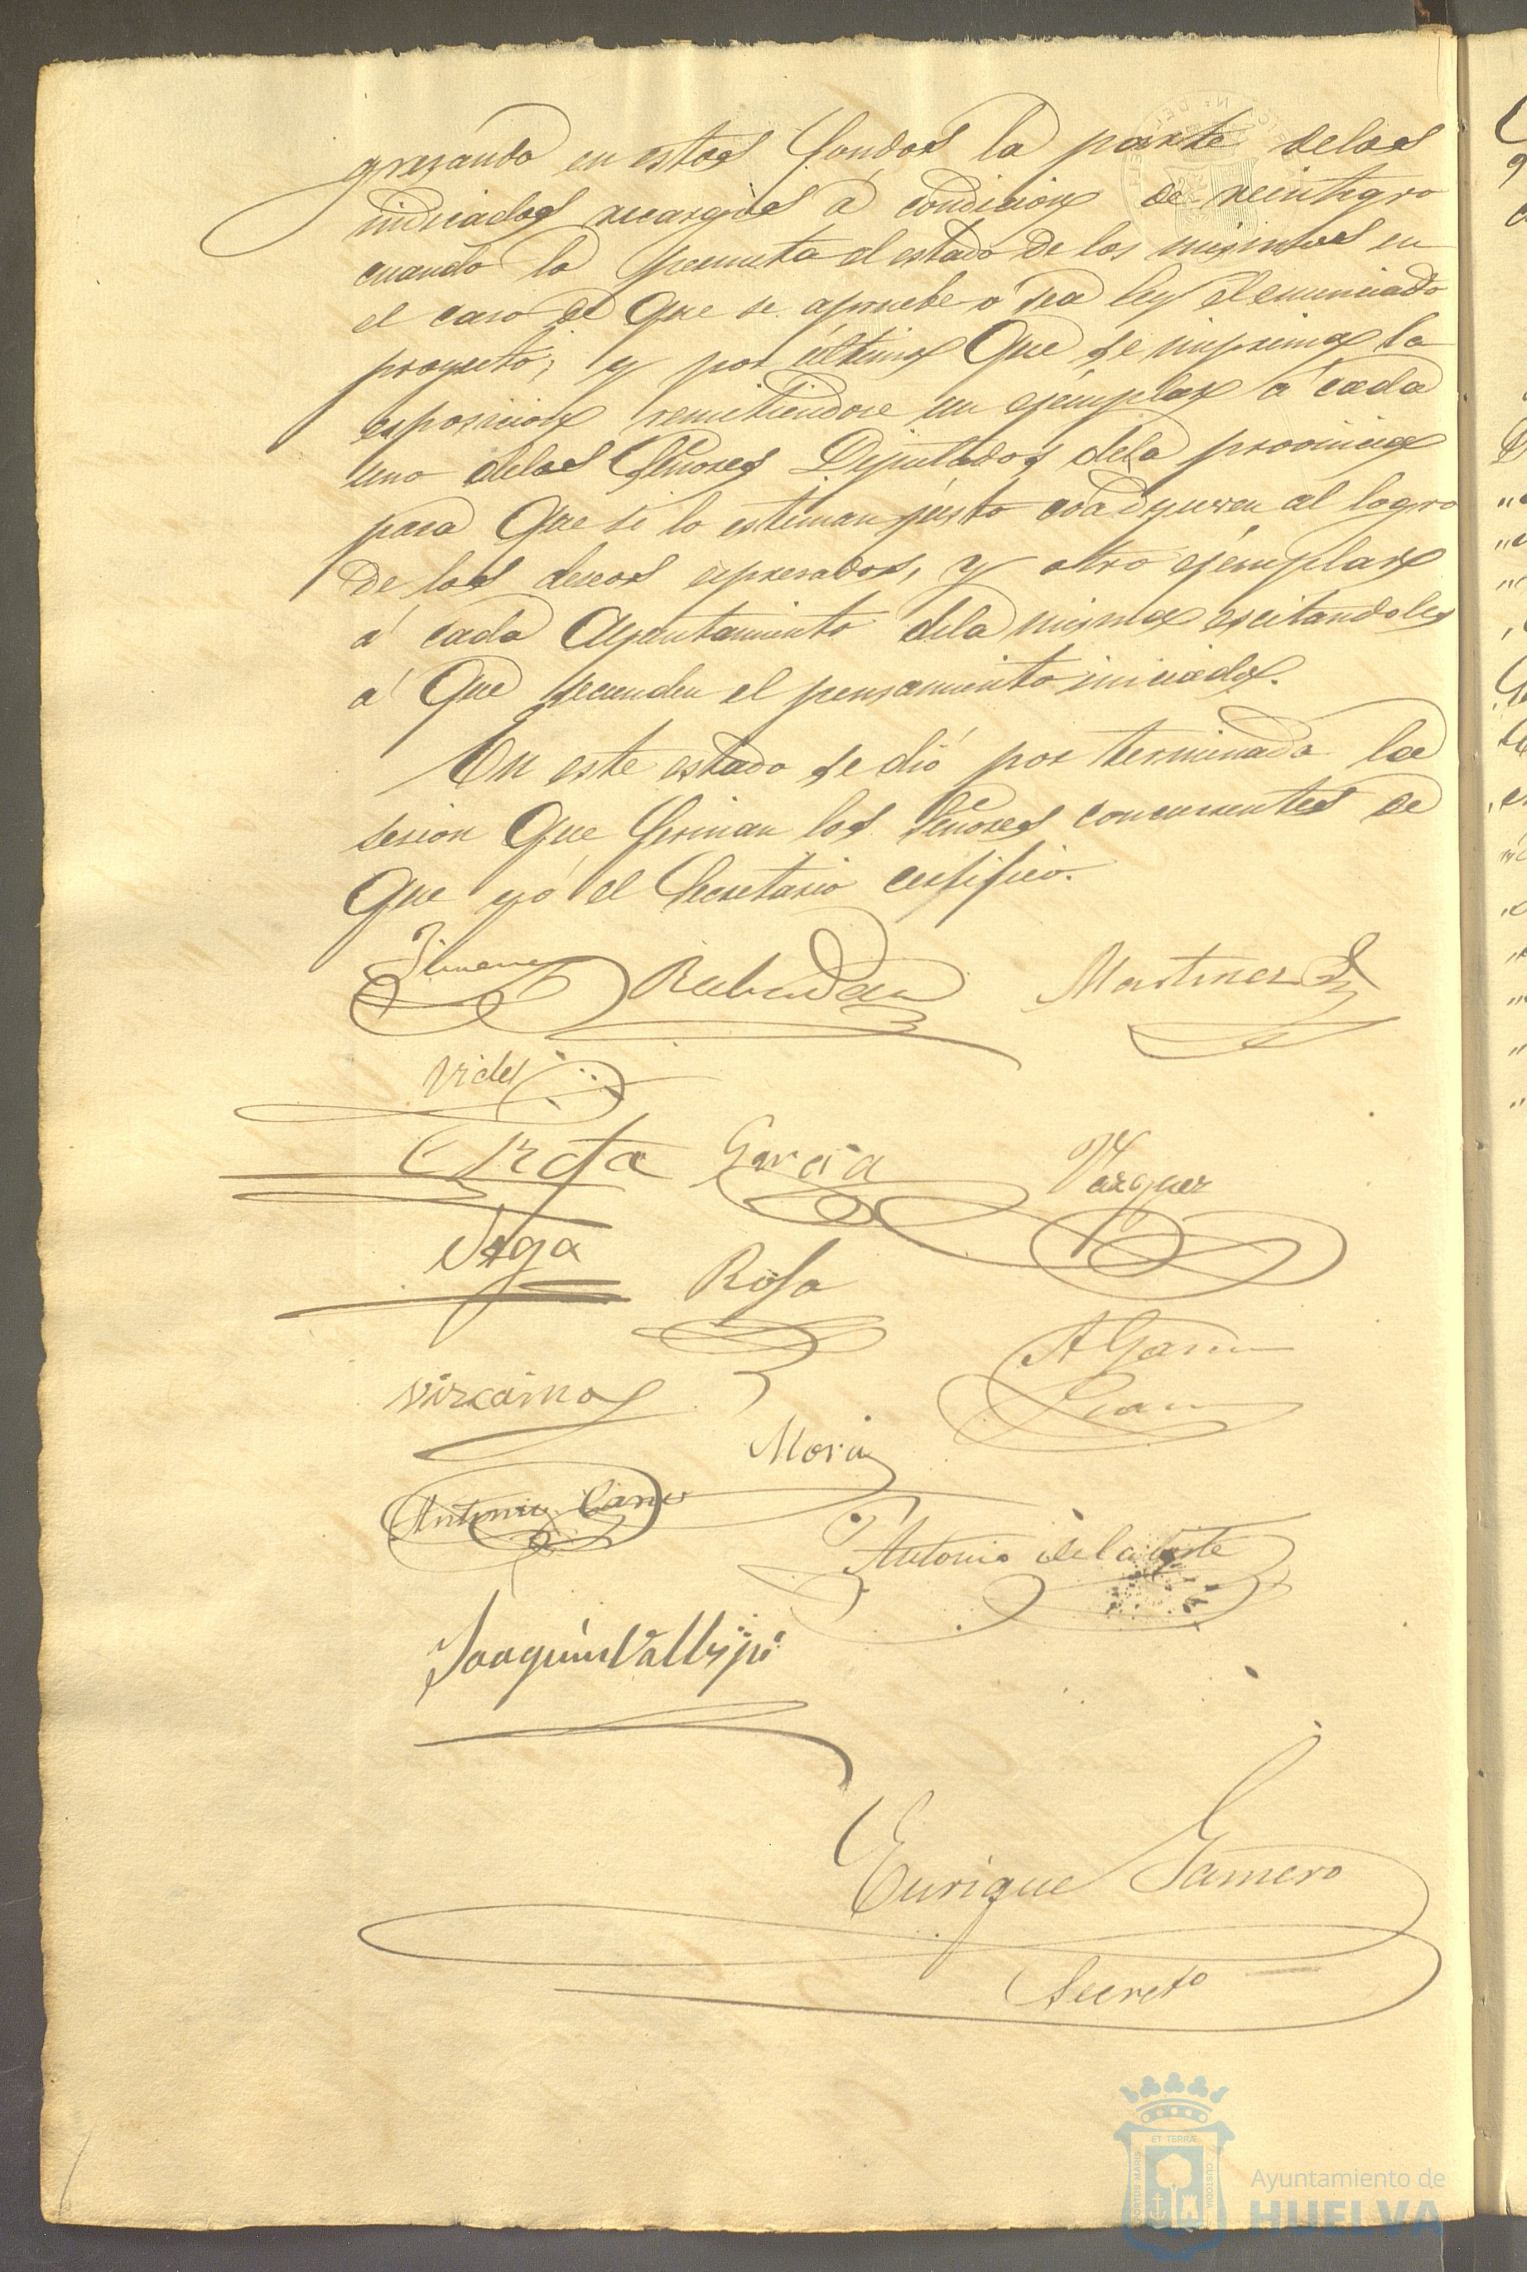 gresando en estos fondos la parte delos
indicados recargos á condicion de reintegro
cuando lo permita el estado de los mismos en
el caso de que se apruebe ó sea ley el enunciado
proyecto; y por último que se imprima la
esposicion remitiendose un ejemplar á cada
uno delos Señores Diputados dela provincia
para que si lo estiman justo coadyuven al logro
de los deseos espresados, y otro ejemplar
á cada Ayuntamiento dela misma escitandoles
á que secunden el pensamiento iniciado.
En este estado se dió por terminada la
sesion que firman los Señores concurrentes de
que yó el Secretario certifico.
Jimenez Rabadan Martinez
Vides
Orta Garcia Vazquez
Vega Rosa
A Garcia
Vizcaino
Mora
Antonio Cano
Antonio de la Corte
Joaquin Vallejo
Enrique Gamero
Secretº
ET TERRÆ
PORTUS MARIS
CUSTODIA
Ayuntamiento de
HUELVA